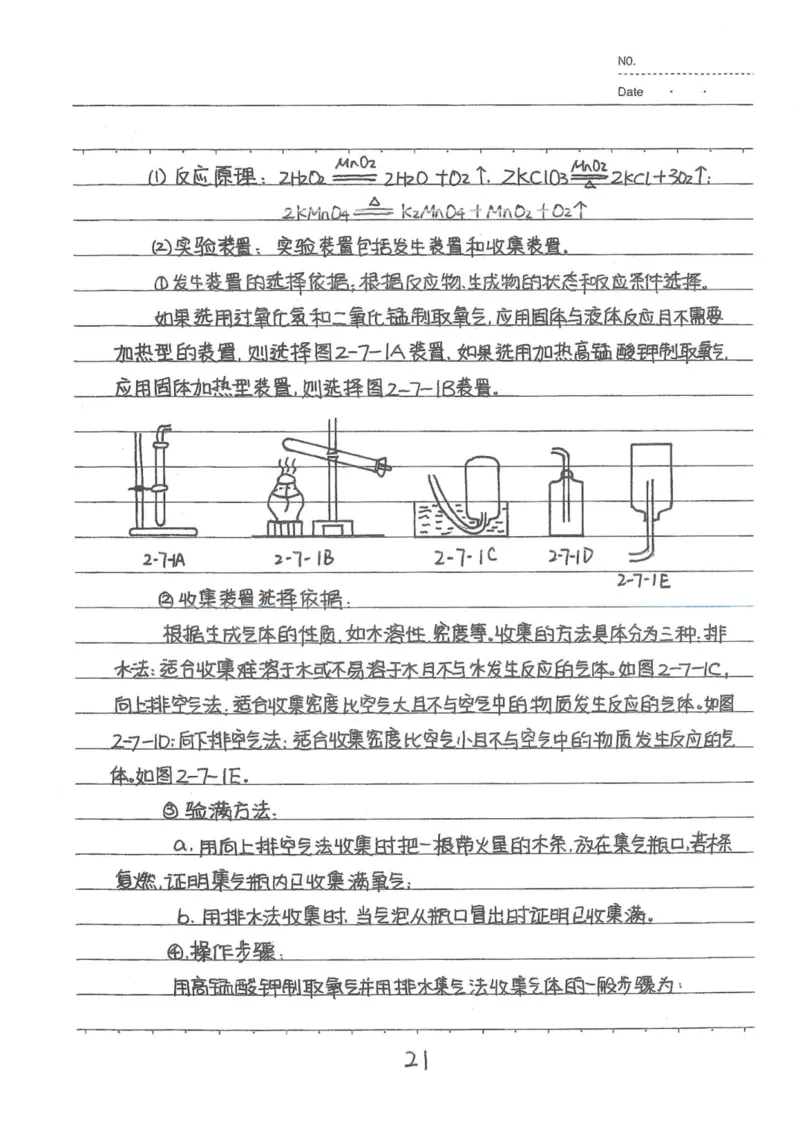 NO.
Date
(1) 反应原理：2H2O2 =MnO2= 2H2O+O2↑. 2KClO3 =MnO2/△= 2KCl+3O2↑;
2KMnO4 =△= K2MnO4+MnO2+O2↑
(2)实验装置：实验装置包括发生装置和收集装置.
①发生装置的选择依据：根据反应物、生成物的状态和反应条件选择.
如果选用过氧化氢和二氧化锰制取氧气,应用固体与液体反应且不需要
加热型的装置,则选择图2-7-1A装置.如果选用加热高锰酸钾制取氧气,
应用固体加热型装置,则选择图2-7-1B装置.
2-7-1A 2-7-1B 2-7-1C 2-7-1D
2-7-1E
②收集装置选择依据：
根据生成气体的性质,如水溶性.密度等。收集的方法具体分为三种:排
水法:适合收集难溶于水或不易溶于水且不与水发生反应的气体。如图2-7-1C,
向上排空气法:适合收集密度比空气大且不与空气中的物质发生反应的气体。如图
2-7-1D;向下排空气法:适合收集密度比空气小且不与空气中的物质发生反应的气
体。如图2-7-1E.
③验满方法：
a.用向上排空气法收集时把一根带火星的木条,放在集气瓶口,若木条
复燃,证明集气瓶内已收集满氧气;
b.用排水法收集时,当气泡从瓶口冒出时证明已收集满。
④.操作步骤：
用高锰酸钾制取氧气并用排水集气法收集气体的一般步骤为：
21